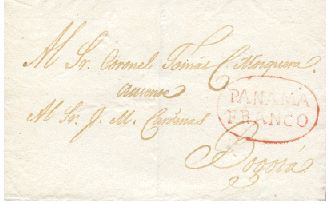 Al Sr. Coronel Tomas C. Mosquera
ausente
Al Sr. J. M. Cardenas
PANAMÁ
FRANCO
Bogotá